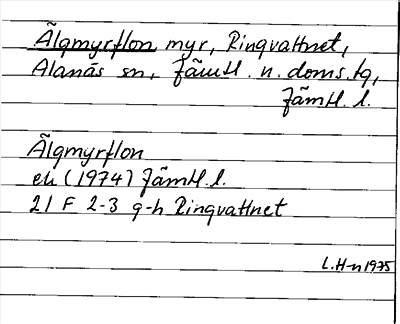 Älgmyrflon myr, Ringvattnet,
Alanäs sn, Jämtl. n. doms.tg,
Jämtl. l.
Älgmyrflon
ek (1974) Jämtl.l.
21 F 2-3 g-h Ringvattnet
L.H-n 1975